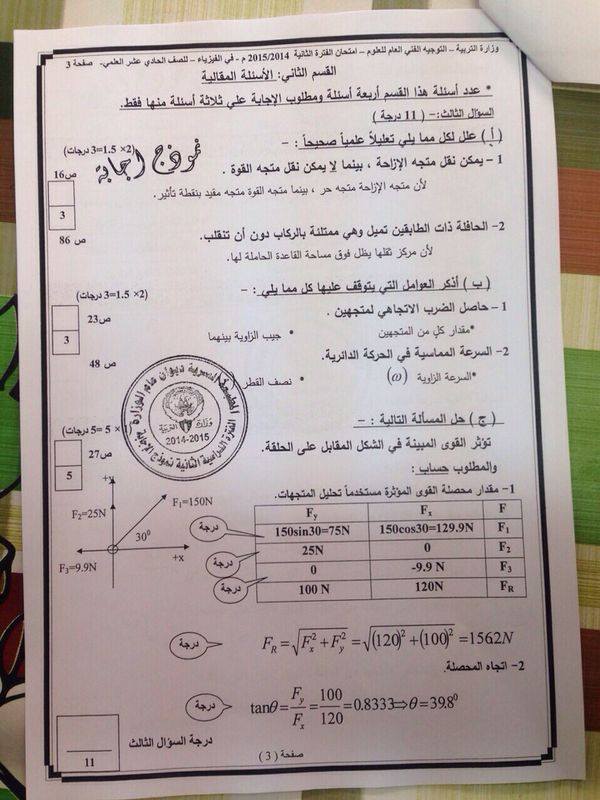 وزارة التربية – التوجيه الفني العام للعلوم – امتحان الفترة الثانية 2015/2014 م - في الفيزياء – للصف الحادي عشر العلمي- صفحة 3
القسم الثاني: الأسئلة المقالية
* عدد أسئلة هذا القسم أربعة أسئلة ومطلوب الإجابة علي ثلاثة أسئلة منها فقط.
السؤال الثالث:– ( 11 درجة )
( أ ) علل لكل مما يلي تعليلاً علمياً صحيحاً : –
(2× 1.5=3 درجات)
نموذج اجابة
1 – يمكن نقل متجه الإزاحة ، بينما لا يمكن نقل متجه القوة .
ص16
لأن متجه الإزاحة متجه حر ، بينما متجه القوة متجه مقيد بنقطة تأثير.
3
2- الحافلة ذات الطابقين تميل وهي ممتلئة بالركاب دون أن تنقلب.
ص 86
لأن مركز ثقلها يظل فوق مساحة القاعدة الحاملة لها.
( ب ) أذكر العوامل التي يتوقف عليها كل مما يلي : –
(2× 1.5=3 درجات)
1 – حاصل الضرب الاتجاهي لمتجهين .
ص23
*مقدار كل من المتجهين * جيب الزاوية بينهما
3
2- السرعة المماسية في الحركة الدائرية.
ص 48
*السرعة الزاوية (ω) * نصف القطر
وزارة التربية
2014-2015
الفترة الدراسية الثانية نموذج الإجابة
( ج ) حل المسألة التالية : –
× 5 =5 درجات)
تؤثر القوى المبينة في الشكل المقابل على الحلقة.
ص27
والمطلوب حساب :
5
1- مقدار محصلة القوى المؤثرة مستخدماً تحليل المتجهات.
+y
F₁=150N
F₂=25N
30⁰
+x
F₃=9.9N
Fy Fx F
150sin30=75N 150cos30=129.9N F₁
25N 0 F₂
0 -9.9 N F₃
100 N 120N FR
درجة
درجة
درجة
F_R = √(F_x² + F_y²) = √((120)² + (100)²) = 156.2N
درجة
2- اتجاه المحصلة.
tanθ = F_y/F_x = 100/120 = 0.8333 ⇒ θ = 39.8⁰
درجة
درجة السؤال الثالث
11
صفحة ( 3 )